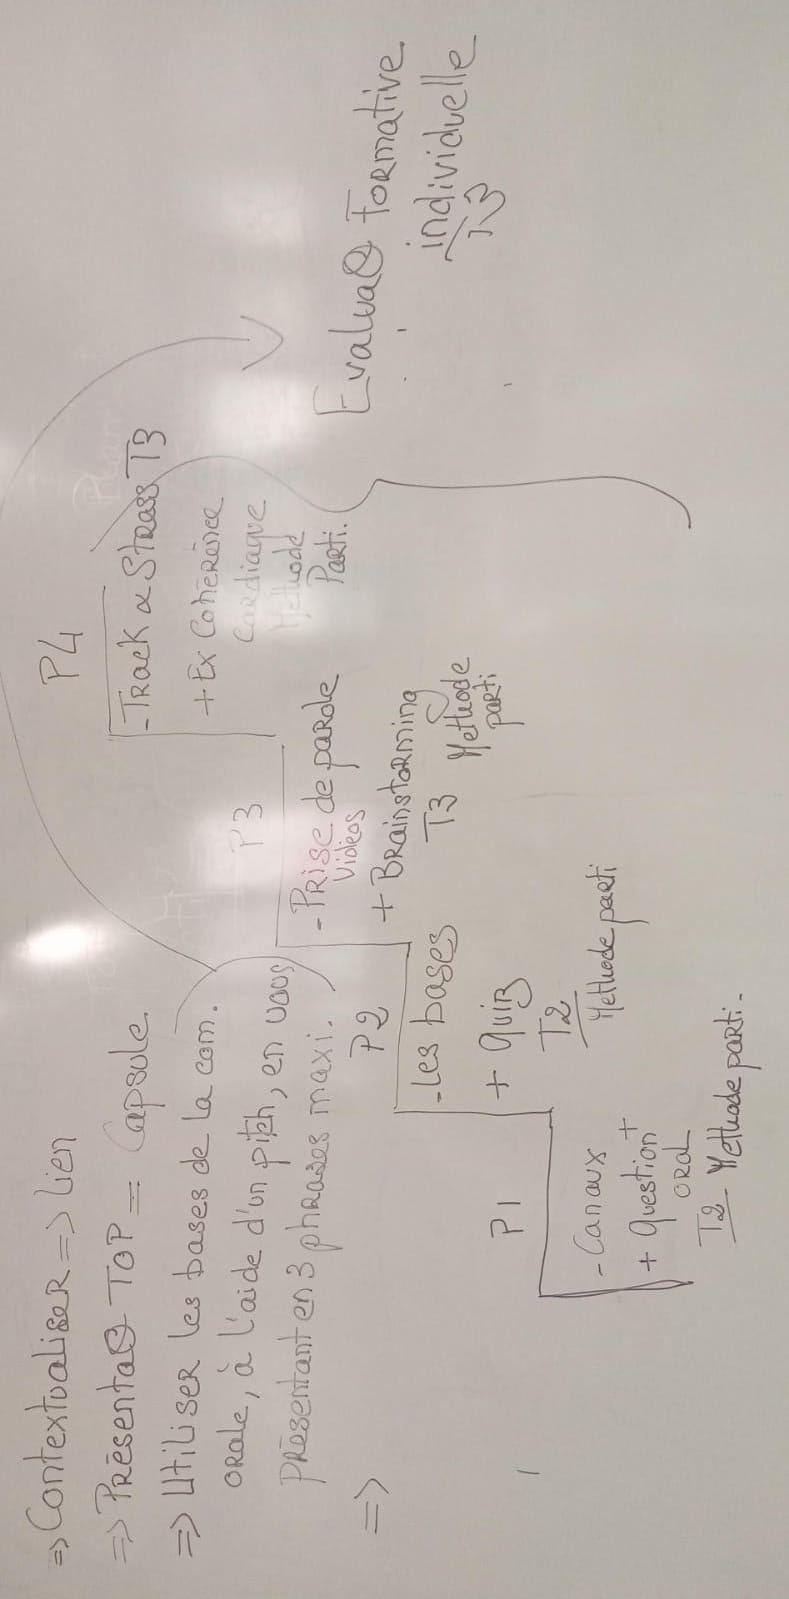 => Contextualiser => Lien
=> Présentaø TOP = Capsule
=> Utiliser les bases de la com.
orale, à l'aide d'un pitch, en vous
présentant en 3 phrases maxi.
=>
P1
- Canaux
+ question +
oral
T2 Methode parti.
P2
- Les bases
+ quiz
T2
Methode parti
P3
- Prise de parole
Vidéos
+ Brainstorming
T3 Methode
parti
P4
- Track & Stress T3
+ Ex Cohérence
Cardiaque
Methode
Parti.
Evaluaø Formative
individuelle
T3